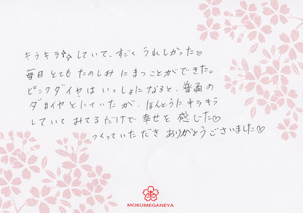 キラキラしていて、すごく うれしかった♡
毎日とても たのしみ にまつことができた。
ピンクダイヤは いっしょに なると、普通の
ダイヤと にていたが、ほんとうに キラキラ
していて みてるだけで 幸せを 感じた♡
つくっていただき ありがとうございました♡
MOKUMEGANEYA